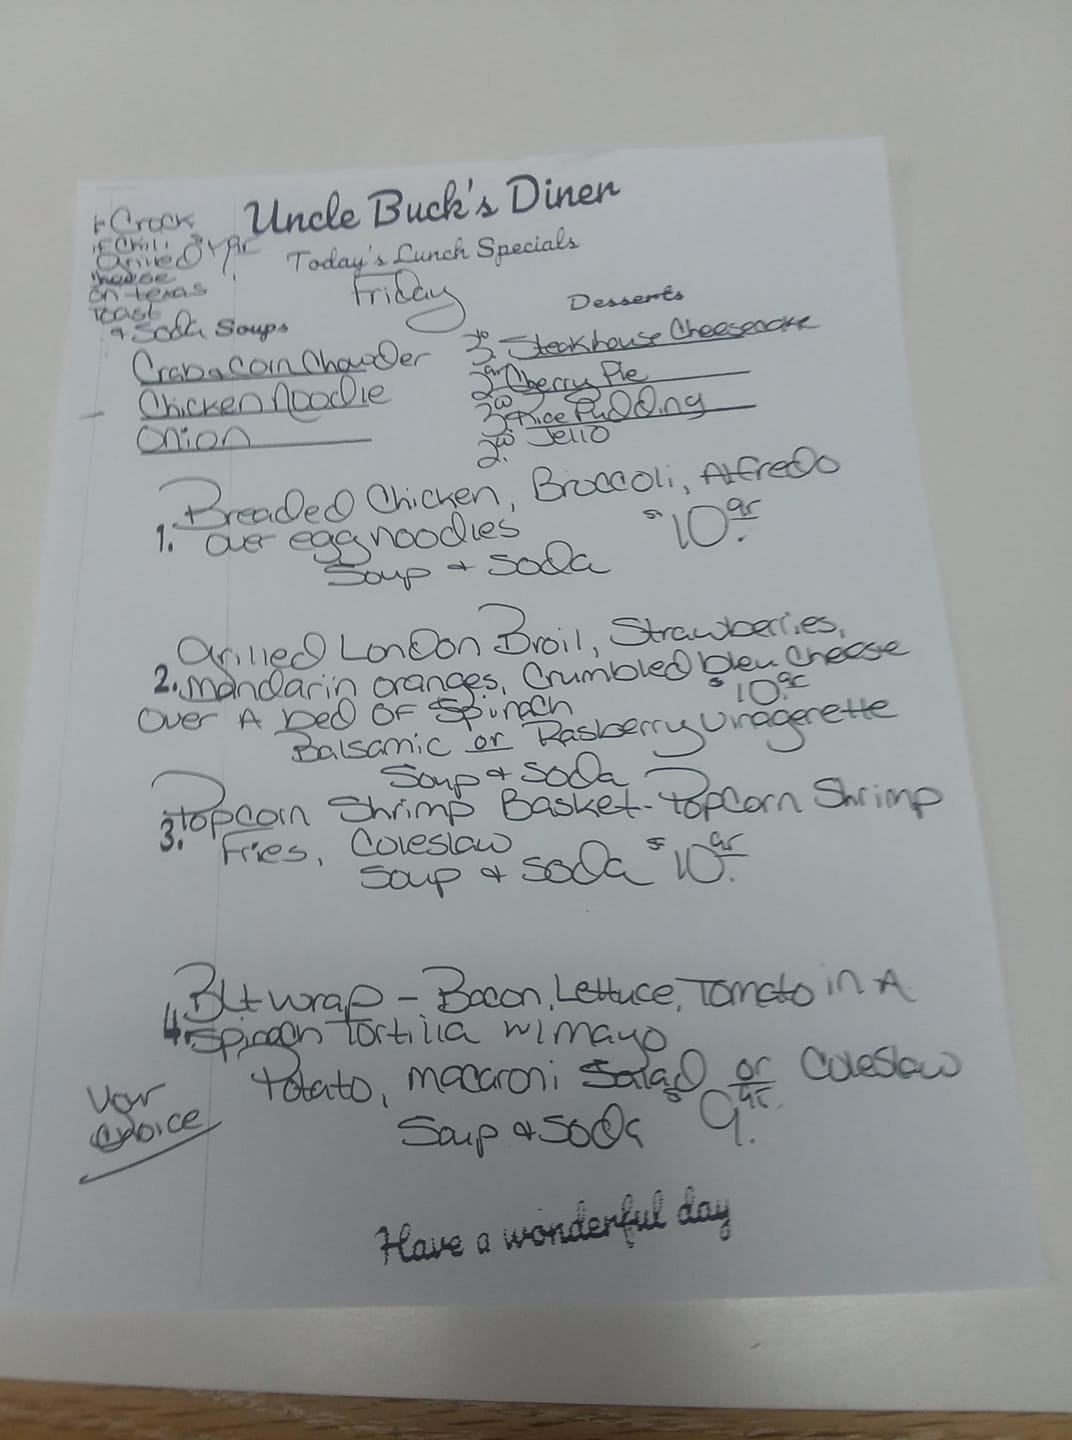 Uncle Buck's Diner
Today's Lunch Specials
Friday
Crock
of Chili
Grilled
cheese
on texas
toast
+ Soda
Soups
Crab & Corn Chowder
Chicken Noodle
Onion
Desserts
Steakhouse Cheesecake
Cherry Pie
Rice Pudding
Jello
Breaded Chicken, Broccoli, Alfredo
1. over egg noodles $10.95
Soup + Soda
Grilled London Broil, Strawberries,
2. mandarin oranges, Crumbled bleu cheese
over A bed OF Spinach $10.95
Balsamic or Rasberry Vinagerette
Soup + Soda
Popcorn Shrimp Basket - Popcorn Shrimp
3. Fries, Coleslaw
Soup + Soda $10.95
BLt wrap - Bacon, Lettuce, Tomato in A
4. Spinach Tortilla w/mayo
Potato, macaroni Salad or Coleslaw
Your
choice
Soup + Soda $9.95
Have a wonderful day